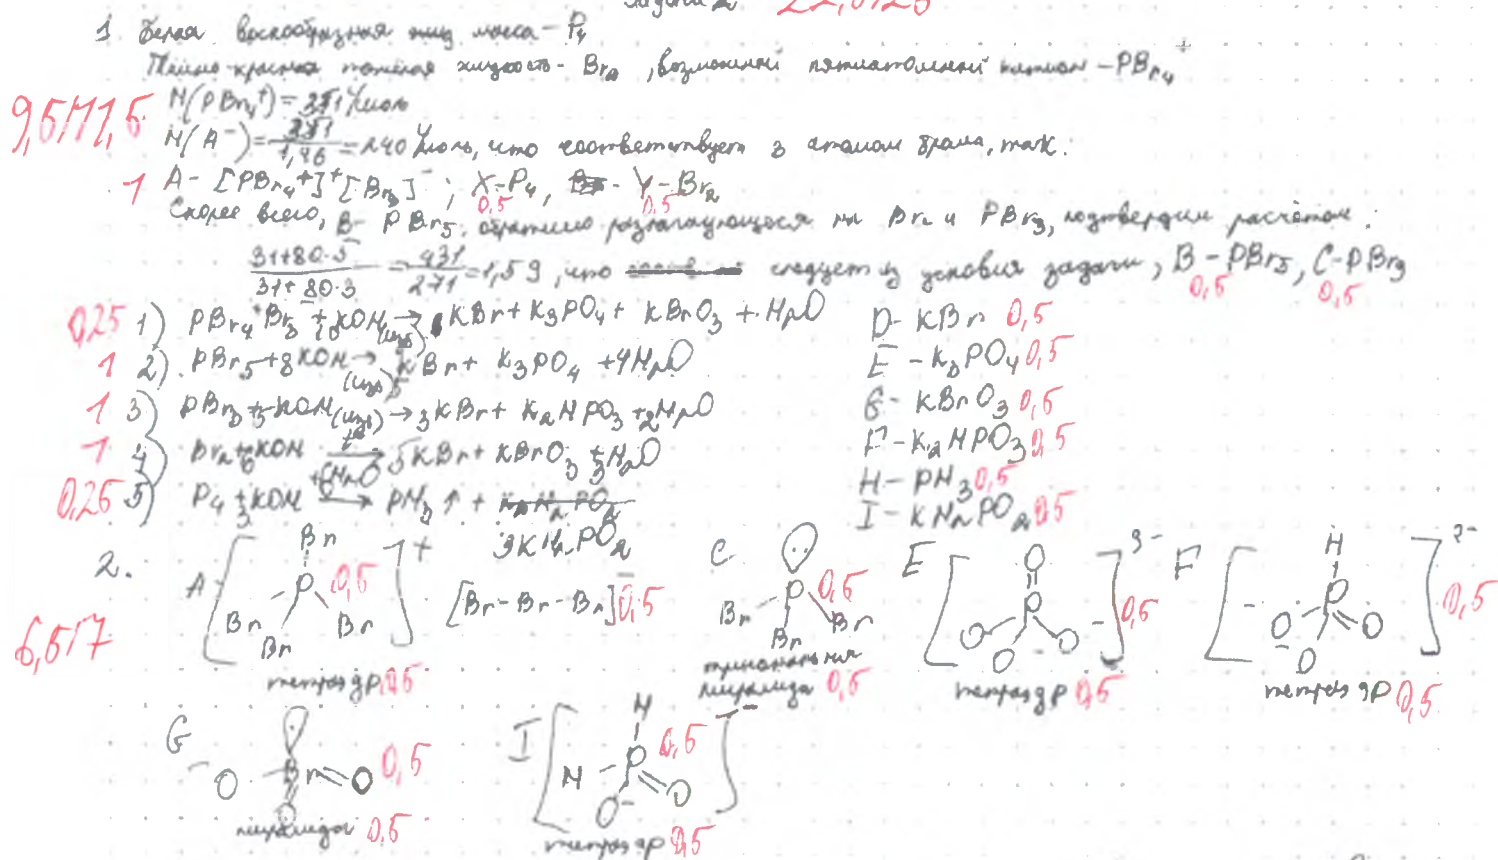 Задача 2 22,5/25
1 Белая воскообразная масса – P4
Тёмно-красная тяжёлая жидкость – Br2, возможный пятиатомный катион – PBr4+
9,5/11,5
M(PBr4+) = 351 г/моль
M(A-) = 351/1,46 = 240 г/моль, что соответствует 3 атомам брома, т.к.
1 A – [PBr4+]+[Br3]-; X – P4, 0,5 Y – Br2 0,5
Скорее всего, B – PBr5, обратимо разлагающегося на Br2 и PBr3, подтвердим расчётом:
31+80·5/31+80·3 = 431/271 = 1,59, что следует из условия задачи, B – PBr5, 0,5 C – PBr3 0,5
0,25 1) PBr4+Br3- + 10KOH(изб) → KBr + K3PO4 + KBrO3 + H2O D – KBr 0,5
1 2) PBr5 + 8KOH (изб) → 5KBr + K3PO4 + 4H2O E – K3PO4 0,5
1 3) PBr3 + 5KOH (изб) → 3KBr + K2HPO3 + 2H2O G – KBrO3 0,5
1 4) Br2 + 6KOH t° → 5KBr + KBrO3 + 3H2O F – K2HPO3 0,5
0,25 5) P4 + 3KOH +H2O → PH3↑ + 3KH2PO2 H – PH3 0,5
I – KH2PO2 0,5
2.
6,5/7
A [Br P Br Br Br]+ 0,5 [Br–Br–Br]- 0,5
тетраэдр 0,5
C P Br Br Br 0,5
тригональная пирамида 0,5
E [O P O O O]3- 0,5
тетраэдр 0,5
F [H P O O O]2- 0,5
тетраэдр 0,5
G O Br O O 0,5
пирамида 0,5
I [H P H O O]- 0,5
тетраэдр 0,5